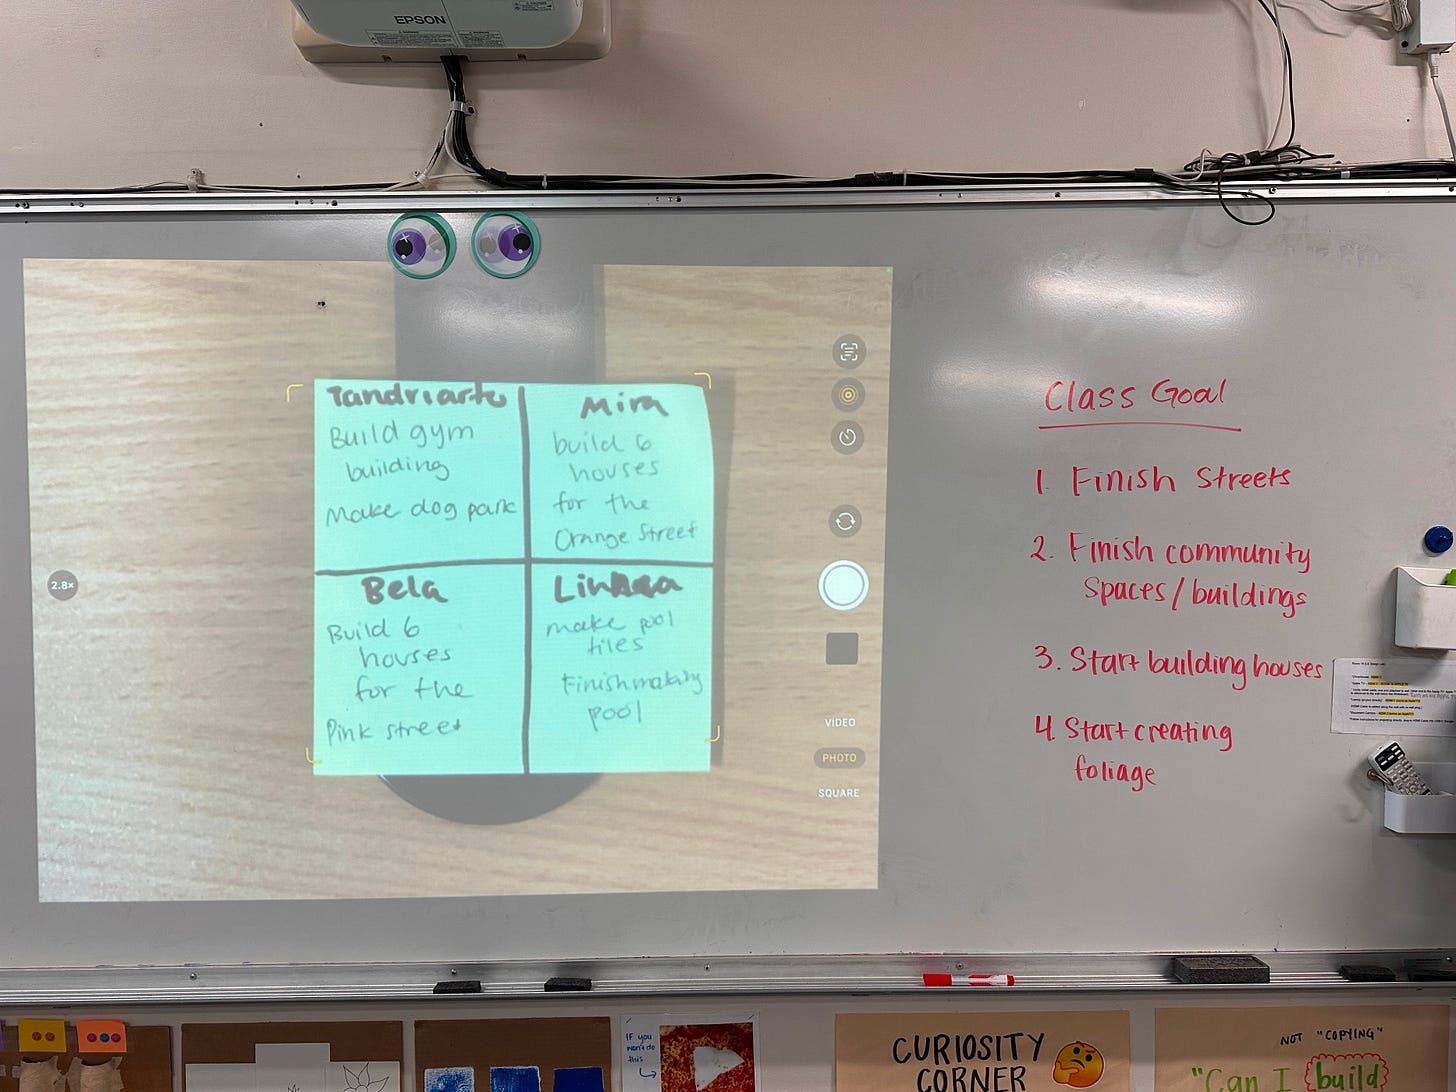 EPSON
Build gym
building
Make dog park
Mira
build 6
houses
for the
Orange Street
Bela
Build 6
houses
for the
Pink street
Linnea
make pool
tiles
Finish making
pool
2.8×
VIDEO
PHOTO
SQUARE
Class Goal
1. Finish Streets
2. Finish community
Spaces/buildings
3. Start building houses
4. Start creating
foliage
IF you
won't do
this
CURIOSITY
CORNER
NOT "COPYING"
"Can I build